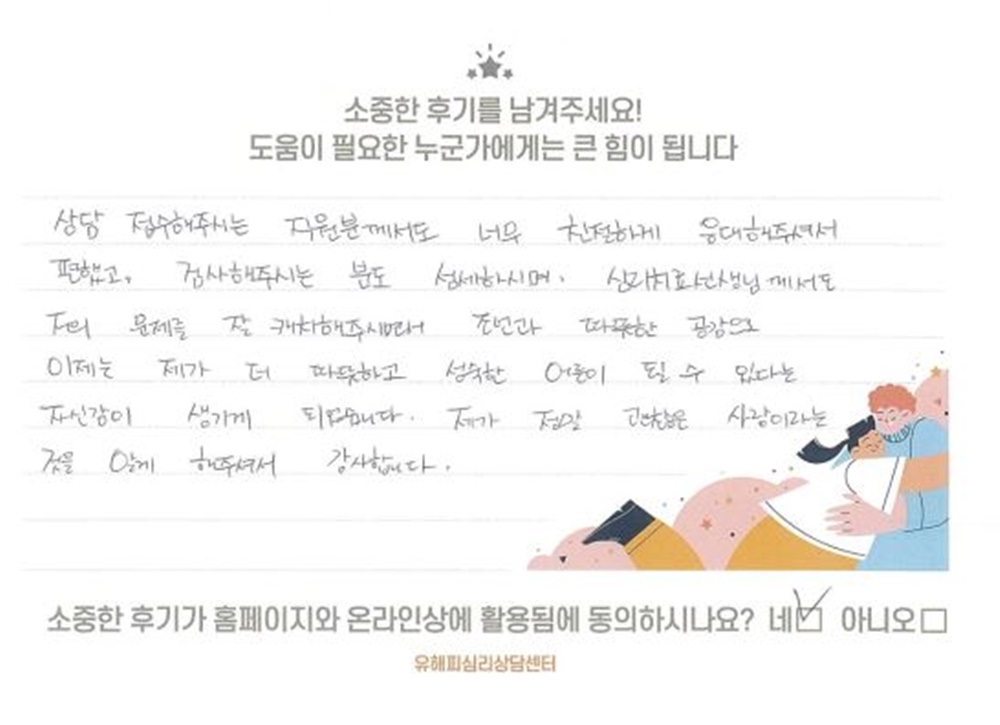 소중한 후기를 남겨주세요!
도움이 필요한 누군가에게는 큰 힘이 됩니다
상담 접수해주시는 직원분께서도 너무 친절하게 응대해주셔서
편했고, 검사해주시는 분도 섬세하시며. 심리치료선생님께서도
저의 문제를 잘 캐치해주시면서 조언과 따뜻한 공감으로
이제는 제가 더 따뜻하고 성숙한 어른이 될 수 있다는
자신감이 생기게 되었습니다. 제가 정말 괜찮은 사람이라는
것을 알게 해주셔서 감사합니다.
소중한 후기가 홈페이지와 온라인상에 활용됨에 동의하시나요? 네 아니오
유해피심리상담센터